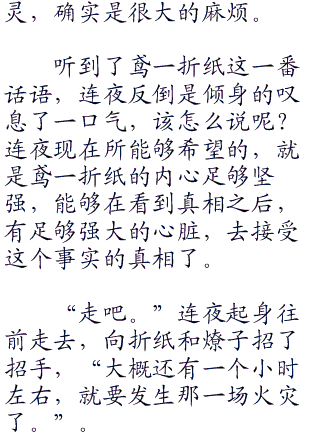 灵，确实是很大的麻烦。
听到了鸢一折纸这一番
话语，连夜反倒是倾身的叹
息了一口气，该怎么说呢？
连夜现在所能够希望的，就
是鸢一折纸的内心足够坚
强，能够在看到真相之后，
有足够强大的心脏，去接受
这个事实的真相了。
“走吧。”连夜起身往
前走去，向折纸和燎子招了
招手，“大概还有一个小时
左右，就要发生那一场火灾
了。”。